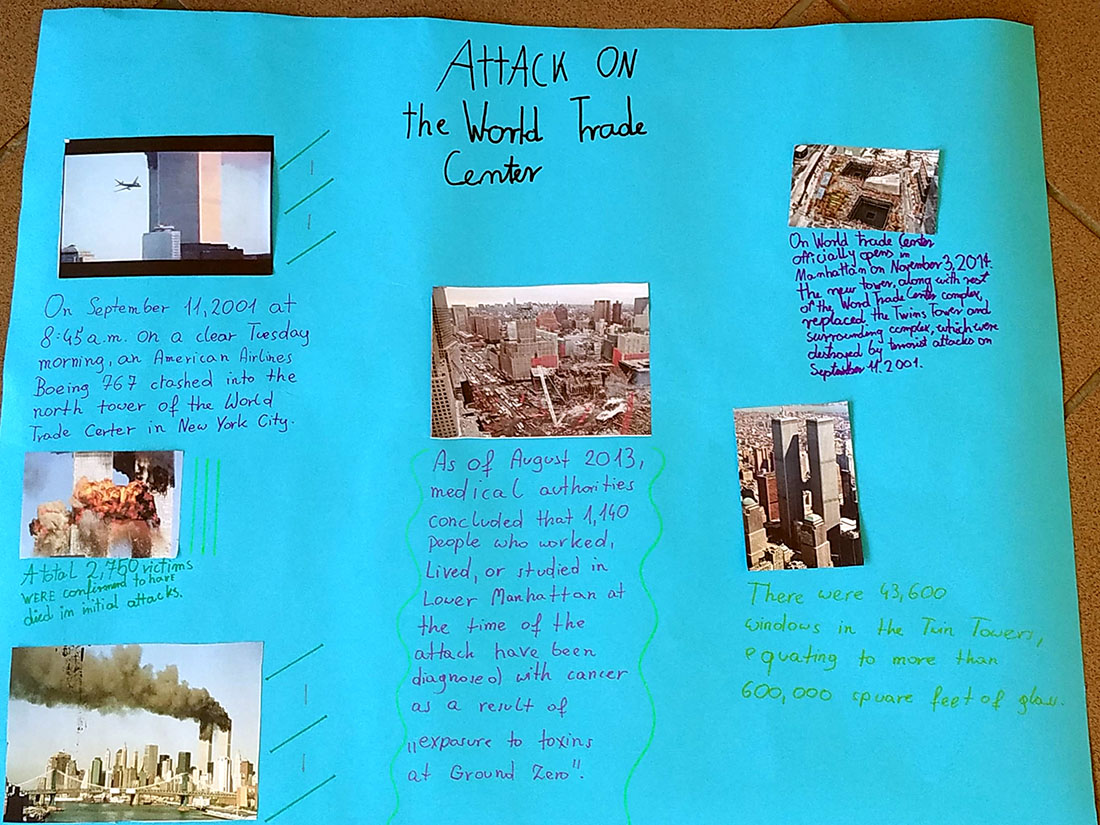 ATTACK ON
the World Trade
Center
On September 11, 2001 at
8:45 a.m. on a clear Tuesday
morning, an American Airlines
Boeing 767 crashed into the
north tower of the World
Trade Certer in New York City.
A total 2,750 victims
WERE confirmed to have
died in initial attacks.
As of August 2013,
medical authorities
concluded that 1,140
people who worked,
Lived, or studied in
Lower Manhattan at
the time of the
attack have been
diagnosed with cancer
as a result of
„exposure to toxins
at Ground Zero".
On World Trade Center
officially opens in
Manhattan on November 3, 2014.
the new tower, along with rest
of the Word Trade Center complex,
replaced the Twins Tower and
surrounding complex, which were
destroyed by terrorist attacks on
September 11. 2001.
There were 43,600
windows in the Twin Towers,
equating to more than
600,000 square feet of glass.